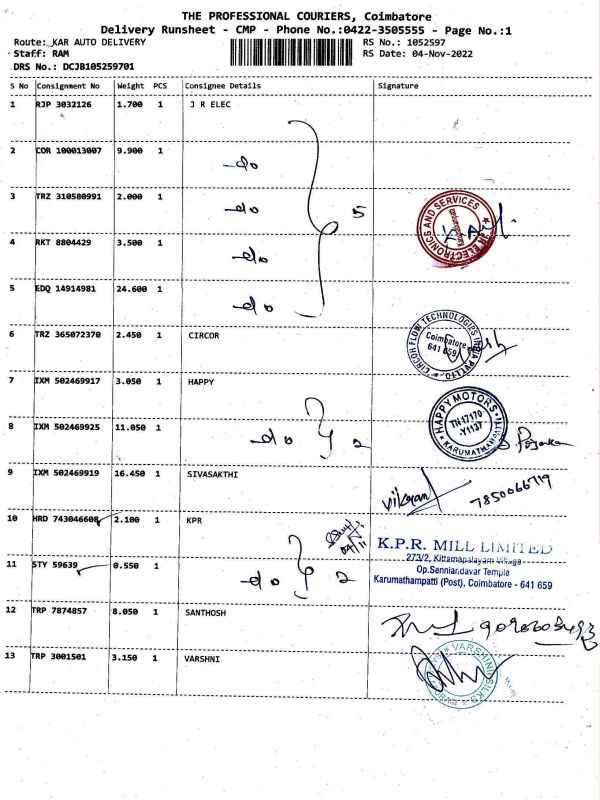 THE PROFESSIONAL COURIERS, Coimbatore
Delivery Runsheet - CMP - Phone No.:0422-3505555 - Page No.:1
Route: KAR AUTO DELIVERY RS No.: 1052597
Staff: RAM RS Date: 04-Nov-2022
DRS No.: DCJB105259701
S No Consignment No Weight PCS Consignee Details Signature
1 RJP 3032126 1.700 1 J R ELEC
2 COR 100013007 9.900 1 -do
3 TRZ 310580991 2.000 1 -do 5
ELECTRONICS AND SERVICES
4 RKT 8804429 3.500 1 -do
5 EDQ 14914981 24.600 1 -do
6 TRZ 365072370 2.450 1 CIRCOR
CIRCOR FLOW TECHNOLOGIES INDIA PVT LTD.
Coimbatore
641 659
7 IXM 502469917 3.050 1 HAPPY
HAPPY MOTORS
TN 17170
-Y1137
KARUMATHAMPATTI
8 IXM 502469925 11.050 1 -do 2
9 IXM 502469919 16.450 1 SIVASAKTHI
Vikram 7850066719
10 HRD 743046608 2.100 1 KPR
04/11
K.P.R. MILL LIMITED
273/2, Kittamapalayam Village
Op.Senniandavar Temple
Karumathampatti (Post), Coimbatore - 641 659
11 STY 59639 0.550 1 -do 2
12 TRP 7874857 8.050 1 SANTHOSH
13 TRP 3001501 3.150 1 VARSHNI
VARSHINI SILKS